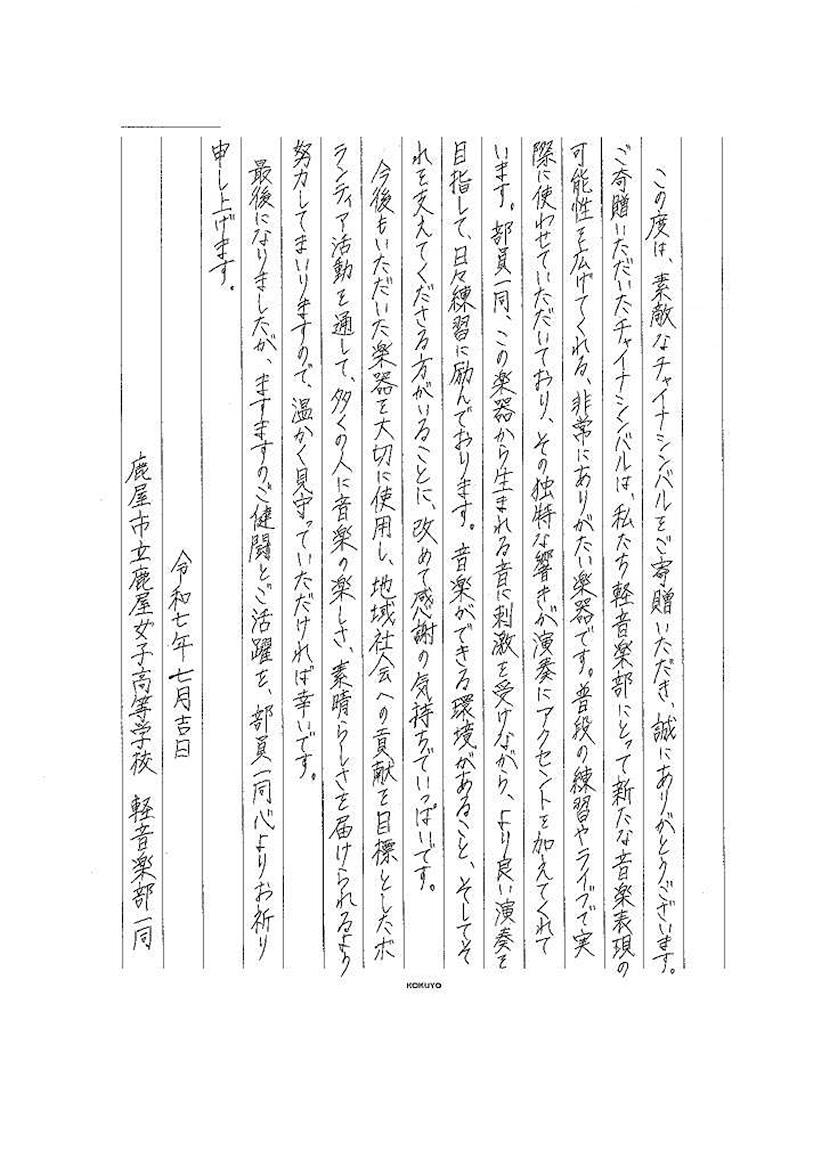 この度は、素敵なチャイナシンバルをご寄贈いただき、誠にありがとうございます。
ご寄贈いただいたチャイナシンバルは、私たち軽音楽部にとって新たな音楽表現の
可能性を広げてくれる、非常にありがたい楽器です。普段の練習やライブで実
際に使わせていただいており、その独特な響きが演奏にアクセントを加えてくれて
います。部員一同、この楽器から生まれる音に刺激を受けながら、より良い演奏を
目指して、日々練習に励んでおります。音楽ができる環境があること、そしてそ
れを支えてくださる方がいることに、改めて感謝の気持ちでいっぱいです。
今後もいただいた楽器を大切に使用し、地域社会への貢献を目標としたボ
ランティア活動を通して、多くの人に音楽の楽しさ、素晴らしさを届けられるよう
努力してまいりますので、温かく見守っていただければ幸いです。
最後になりましたが、ますますのご健闘とご活躍を、部員一同心よりお祈り
申し上げます。
令和七年七月吉日
鹿屋市立鹿屋女子高等学校 軽音楽部一同
KOKUYO